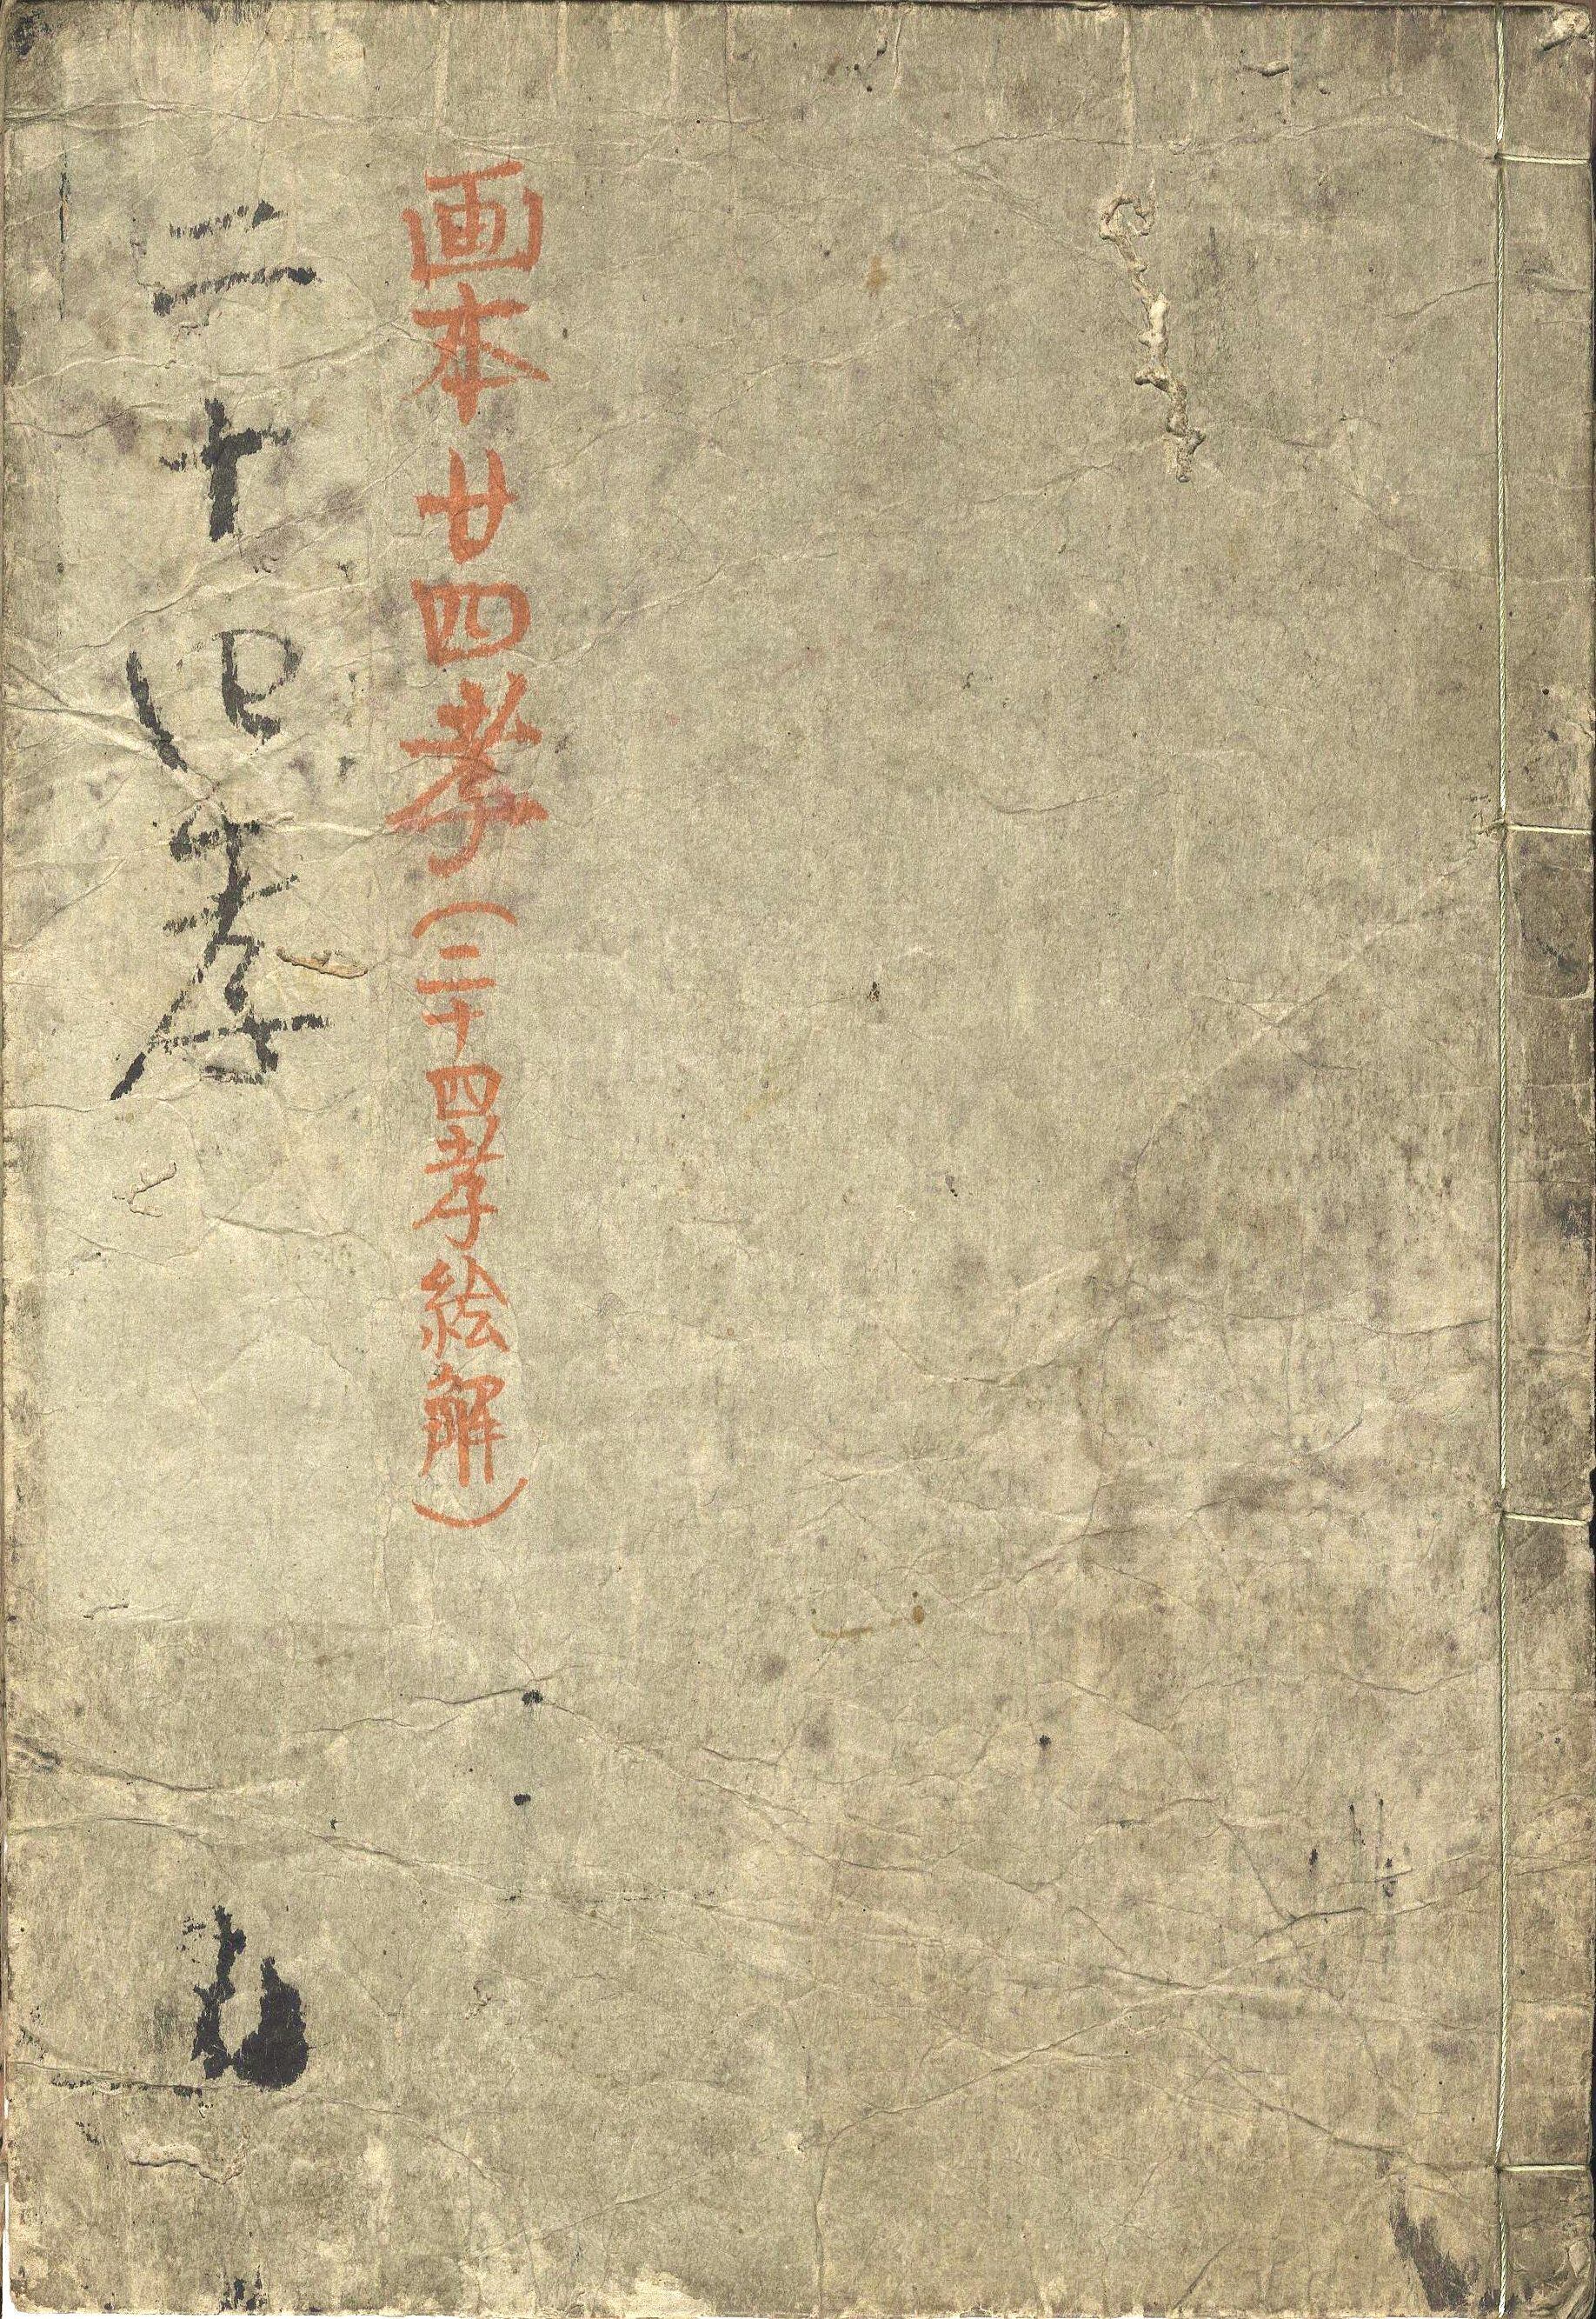 画本廿四孝(二十四孝絵解)
二十四孝